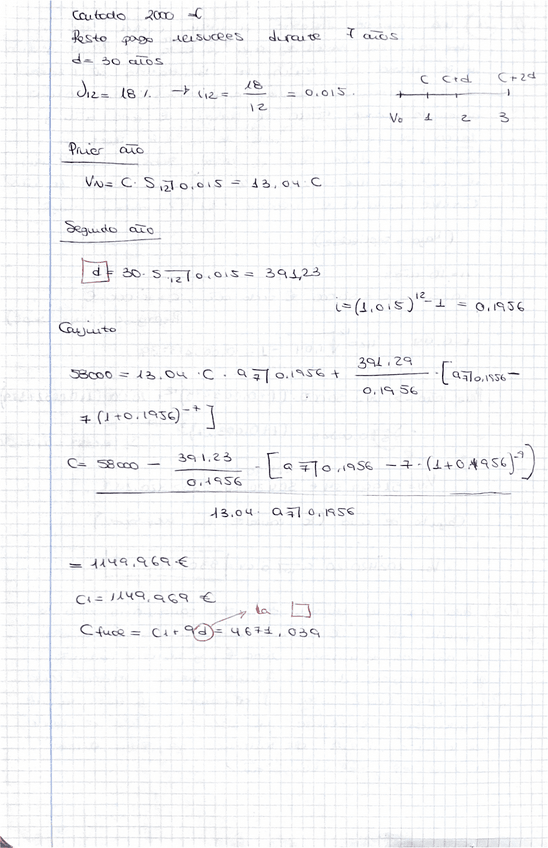 Contado 2000 €
Resto pago mensuales durante 7 años
d= 30 años
J12= 18 % → i12= 18/12 = 0.015.
C C+d C+2d
V0 1 2 3
Primer año
VN= C· S12⌉0,015 = 13,04 · C
Segundo año
d = 30· S12⌉0,015 = 391,23
i=(1,015)^12 - 1 = 0,1956
Conjunto
58000 = 13.04 · C · a7⌉0,1956 + 391,29/0,1956 · [a7⌉0,1956 -
7 (1+0,1956)^-7 ]
C= 58000 - 391,23/0,1956 - [a7⌉0,1956 - 7· (1+0,1956)^-7)
13,04 · a7⌉0,1956
= 1149,969 €
C1= 1149,969 €
la
C = C1 + 9d = 4671,039